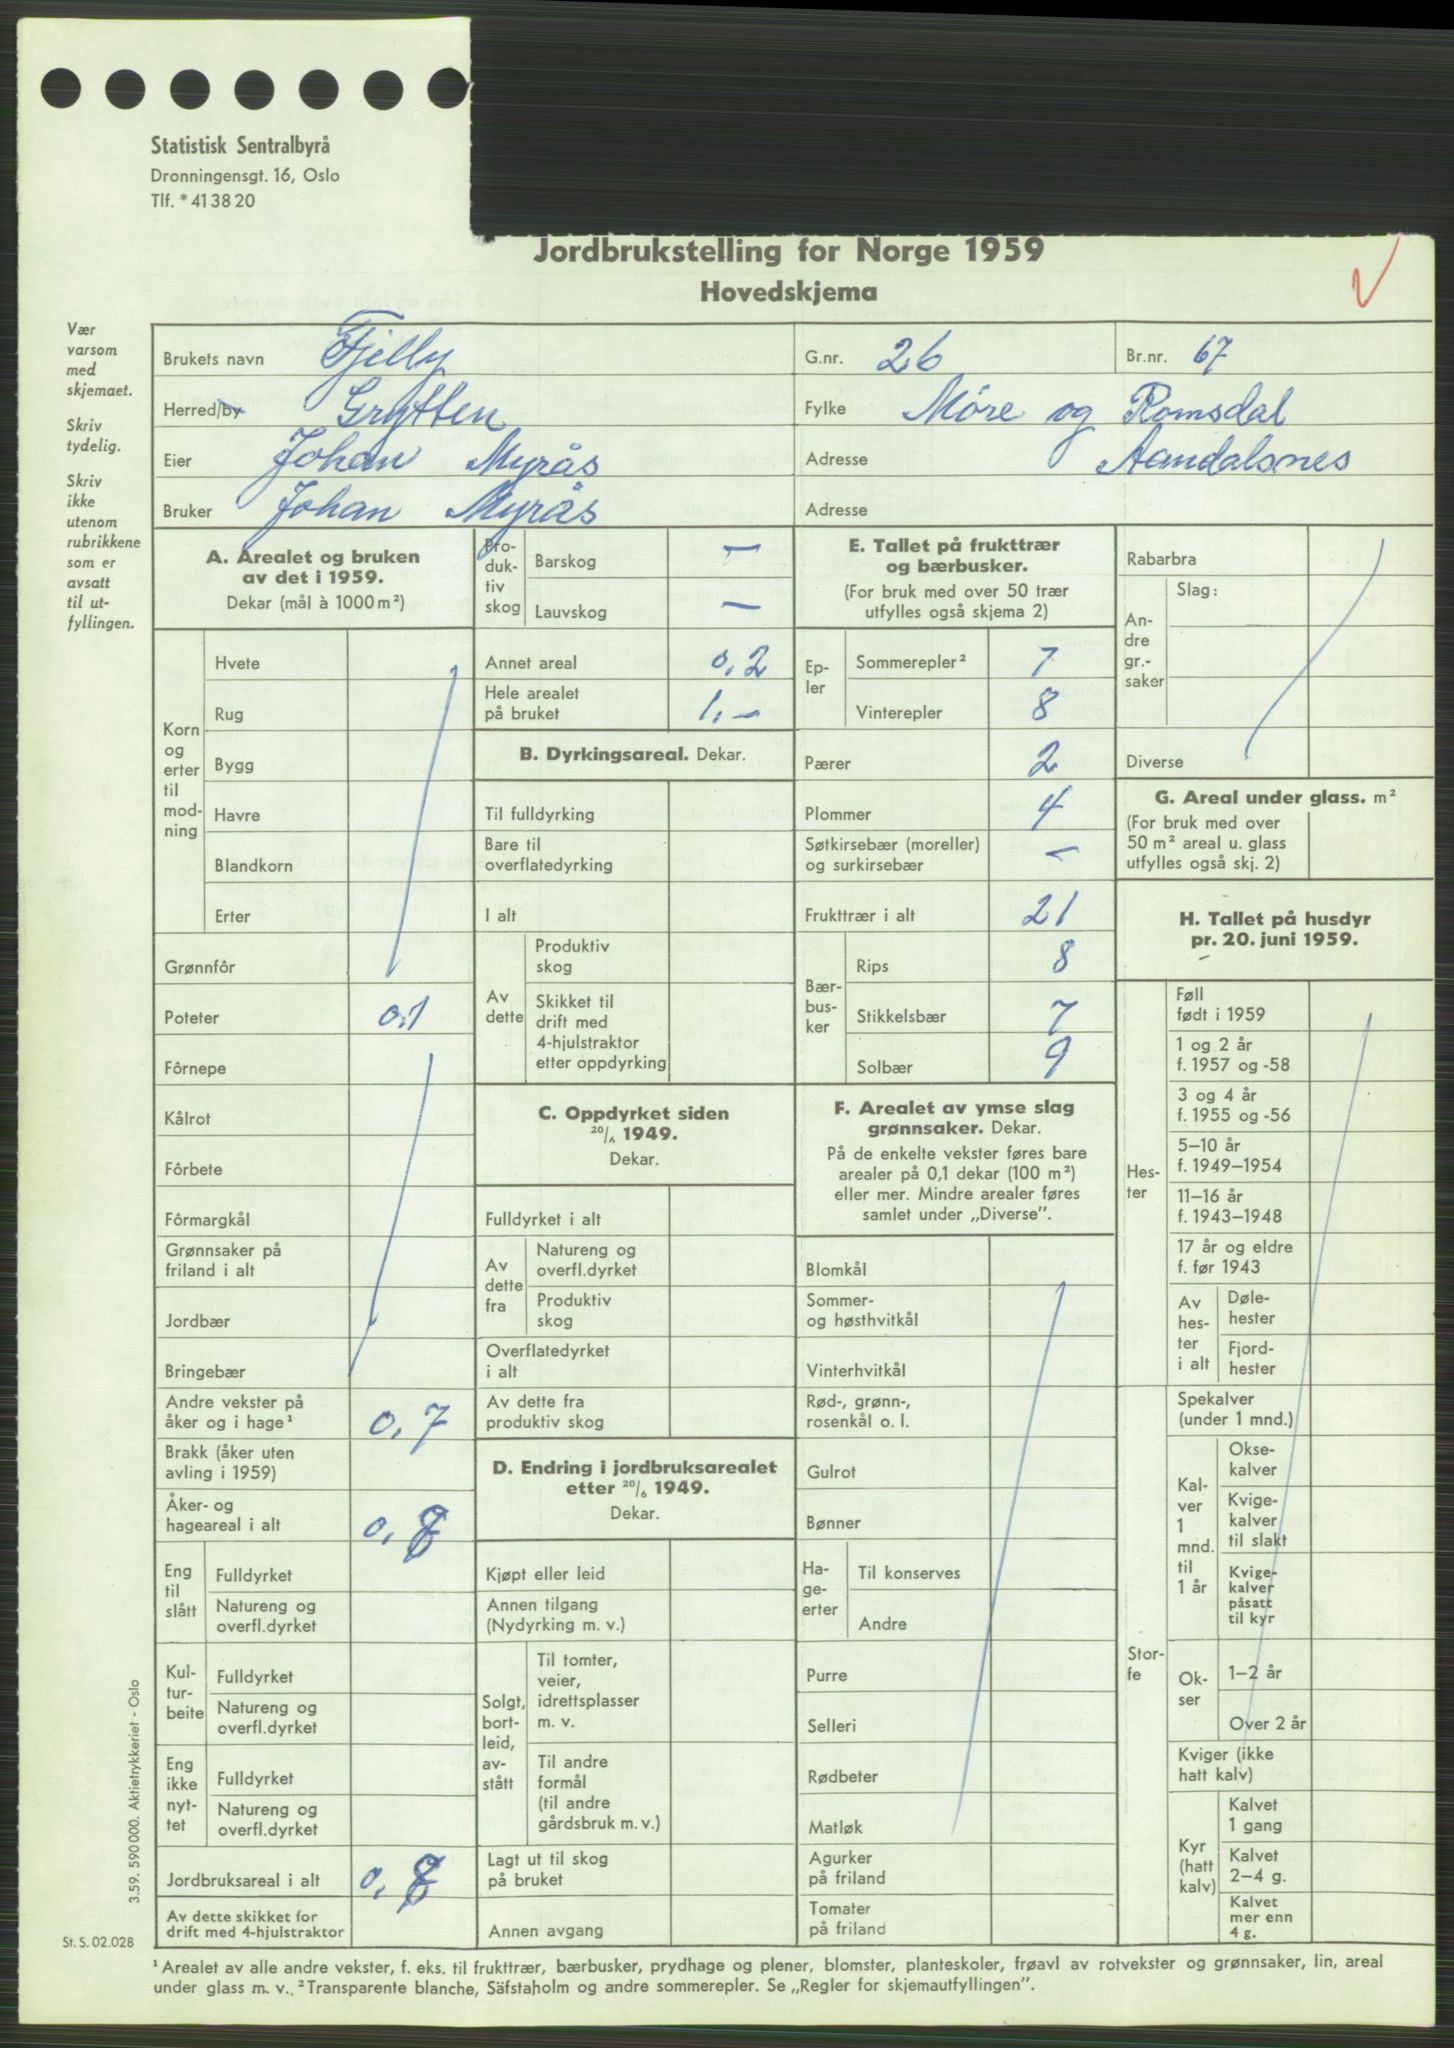 Statistisk Sentralbyrå
Dronningensgt. 16, Oslo
Tlf. *41 38 20
Jordbrukstelling for Norge 1959
Hovedskjema
Vær
varsom
med
skjemaet.
Skriv
tydelig.
Skriv
ikke
utenom
rubrikkene
som er
avsatt
til ut-
fyllingen.
Brukets navn Fjelly G.nr. 26 Br.nr. 67
Herred/by Grytten Fylke Møre og Romsdal
Eier Johan Myrås Adresse Aandalsnes
Bruker Johan Myrås Adresse
A. Arealet og bruken
av det i 1959.
Dekar (mål à 1000 m²)
Korn
og
erter
til
mod-
ning
Hvete
Rug
Bygg
Havre
Blandkorn
Erter
Grønnfôr
Poteter 0,1
Fôrnepe
Kålrot
Fôrbete
Fôrmargkål
Grønnsaker på
friland i alt
Jordbær
Bringebær
Andre vekster på
åker og i hage¹ 0,7
Brakk (åker uten
avling i 1959)
Åker- og
hageareal i alt 0,8
Eng
til
slått
Fulldyrket
Natureng og
overfl.dyrket
Kul-
tur-
beite
Fulldyrket
Natureng og
overfl.dyrket
Eng
ikke
nyt-
tet
Fulldyrket
Natureng og
overfl.dyrket
Jordbruksareal i alt 0,8
Av dette skikket for
drift med 4-hjulstraktor
Pro-
duk-
tiv
skog
Barskog —
Lauvskog —
Annet areal 0,2
Hele arealet
på bruket 1,—
B. Dyrkingsareal. Dekar.
Til fulldyrking
Bare til
overflatedyrking
I alt
Av
dette
Produktiv
skog
Skikket til
drift med
4-hjulstraktor
etter oppdyrking
C. Oppdyrket siden
20/6 1949.
Dekar.
Fulldyrket i alt
Av
dette
fra
Natureng og
overfl.dyrket
Produktiv
skog
Overflatedyrket
i alt
Av dette fra
produktiv skog
D. Endring i jordbruksarealet
etter 20/6 1949.
Dekar.
Kjøpt eller leid
Annen tilgang
(Nydyrking m. v.)
Solgt,
bort-
leid,
av-
stått
Til tomter,
veier,
idrettsplasser
m. v.
Til andre
formål
(til andre
gårdsbruk m. v.)
Lagt ut til skog
på bruket
Annen avgang
E. Tallet på frukttrær
og bærbusker.
(For bruk med over 50 trær
utfylles også skjema 2)
Ep-
ler
Sommerepler² 7
Vinterepler 8
Pærer 2
Plommer 4
Søtkirsebær (moreller)
og surkirsebær —
Frukttrær i alt 21
Bær-
bus-
ker
Rips 8
Stikkelsbær 7
Solbær 9
F. Arealet av ymse slag
grønnsaker. Dekar.
På de enkelte vekster føres bare
arealer på 0,1 dekar (100 m²)
eller mer. Mindre arealer føres
samlet under „Diverse”.
Blomkål
Sommer-
og høsthvitkål
Vinterhvitkål
Rød-, grønn-,
rosenkål o. l.
Gulrot
Bønner
Ha-
ge-
erter
Til konserves
Andre
Purre
Selleri
Rødbeter
Matløk
Agurker
på friland
Tomater
på friland
Rabarbra
An-
dre
gr.-
saker
Slag:
Diverse
G. Areal under glass. m²
(For bruk med over
50 m² areal u. glass
utfylles også skj. 2)
H. Tallet på husdyr
pr. 20. juni 1959.
Hes-
ter
Føll
født i 1959
1 og 2 år
f. 1957 og -58
3 og 4 år
f. 1955 og -56
5–10 år
f. 1949–1954
11–16 år
f. 1943–1948
17 år og eldre
f. før 1943
Av
hes-
ter
i alt
Døle-
hester
Fjord-
hester
Stor-
fe
Spekalver
(under 1 mnd.)
Kal-
ver
1
mnd.
til
1 år
Okse-
kalver
Kvige-
kalver
til slakt
Kvige-
kalver
påsatt
til kyr
Ok-
ser
1–2 år
Over 2 år
Kviger (ikke
hatt kalv)
Kyr
(hatt
kalv)
Kalvet
1 gang
Kalvet
2–4 g.
Kalvet
mer enn
4 g.
3.59. 590 000. Aktietrykkeriet - Oslo
St. S. 02.028
¹ Arealet av alle andre vekster, f. eks. til frukttrær, bærbusker, prydhage og plener, blomster, planteskoler, frøavl av rotvekster og grønnsaker, lin, areal
under glass m. v. ² Transparente blanche, Säfstaholm og andre sommerepler. Se „Regler for skjemautfyllingen”.